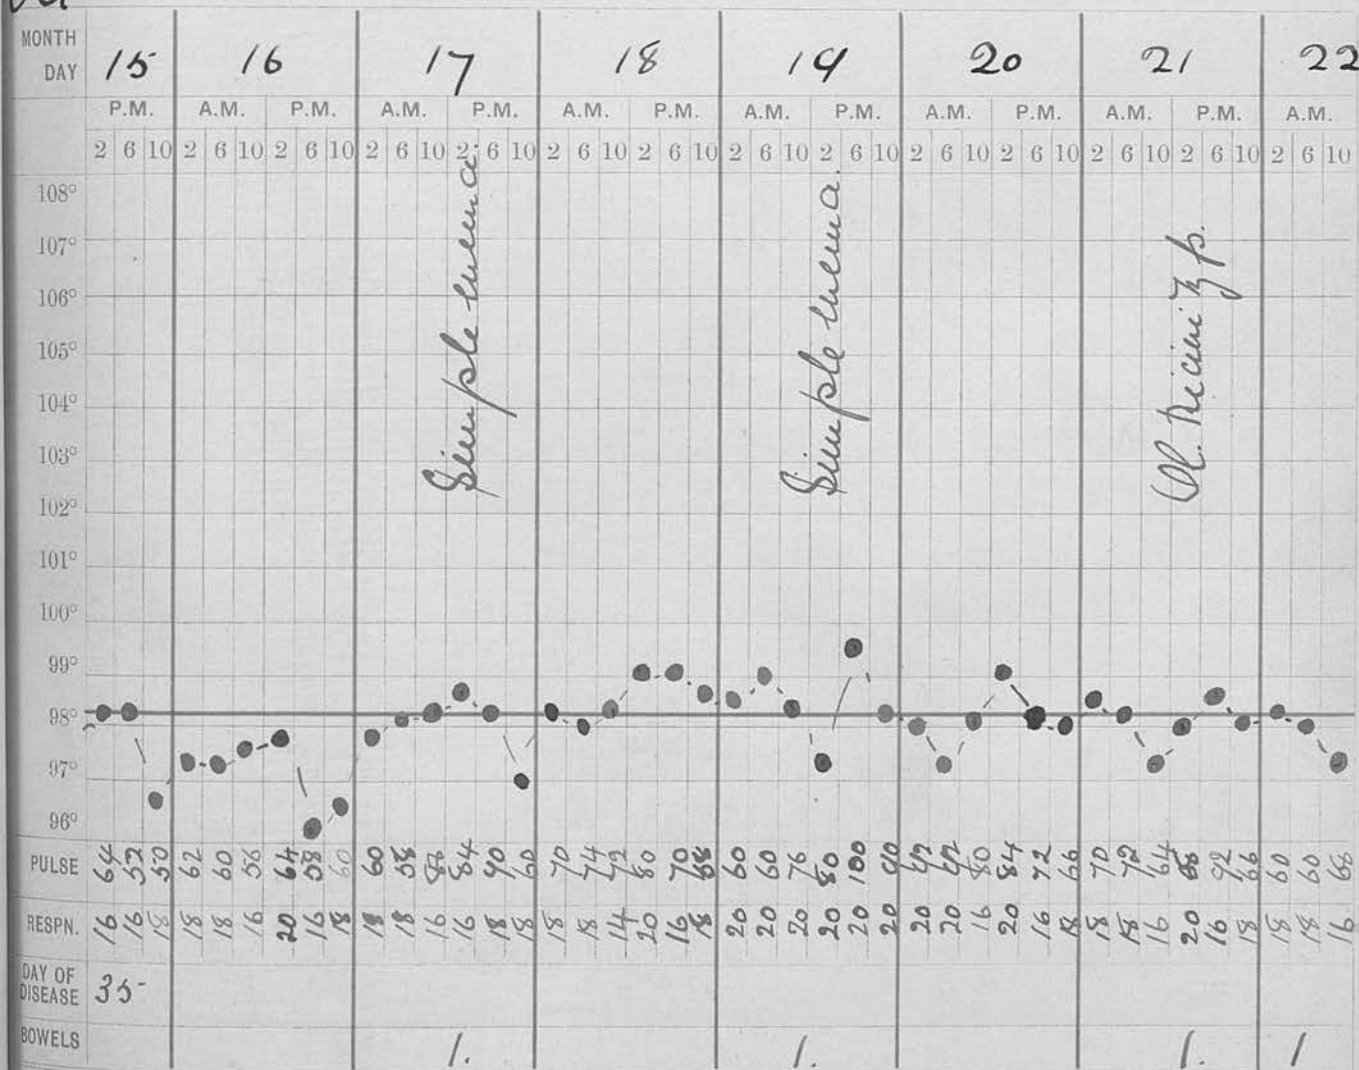 MONTH
DAY 15 16 17 18 19 20 21 22
P.M. A.M. P.M. A.M. P.M. A.M. P.M. A.M. P.M. A.M. P.M. A.M. P.M. A.M.
2 6 10 2 6 10 2 6 10 2 6 10 2 6 10 2 6 10 2 6 10 2 6 10 2 6 10 2 6 10 2 6 10 2 6 10 2 6 10 2 6 10
108°
107°
106°
105°
104°
103°
102°
101°
100°
99°
98°
97°
96°
Simple enema.
Simple enema.
Ol. Ricini ℥ p.
PULSE 64 52 50 62 60 56 64 58 60 60 58 88 84 90 60 70 74 72 80 70 68 60 60 76 80 100 80 84 72 66 70 72 64 88 92 66 60 60 68
RESPN. 16 16 18 18 18 16 20 16 18 18 18 16 16 18 18 18 18 14 20 16 18 20 20 20 20 20 20 20 20 16 20 16 18 18 18 16 20 16 18 18 18 16
DAY OF
DISEASE 35
BOWELS 1. 1. 1. 1